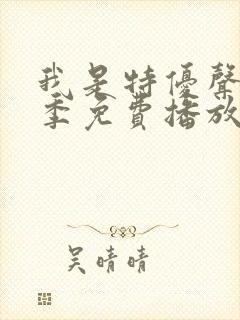 我是特優聲
季免費播放
吴晴晴